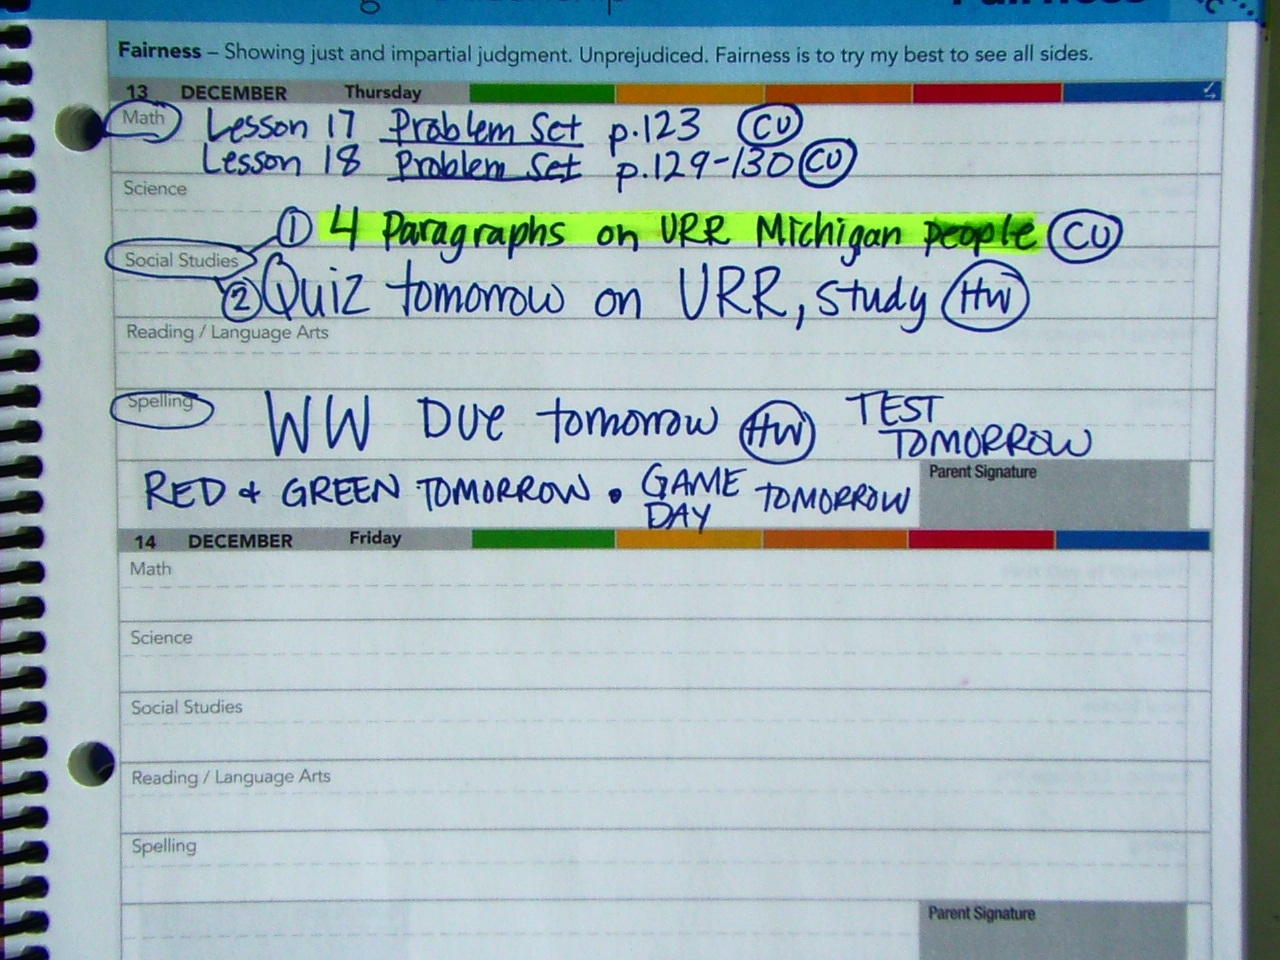 Fairness – Showing just and impartial judgment. Unprejudiced. Fairness is to try my best to see all sides.
13 DECEMBER Thursday
Math Lesson 17 Problem Set p.123 CU
Lesson 18 Problem Set p.129-130 CU
Science
① 4 Paragraphs on URR Michigan people CU
Social Studies
② Quiz tomorrow on URR, study HW
Reading / Language Arts
Spelling WW Due tomorrow HW TEST TOMORROW
RED + GREEN TOMORROW • GAME DAY TOMORROW
Parent Signature
14 DECEMBER Friday
Math
Science
Social Studies
Reading / Language Arts
Spelling
Parent Signature